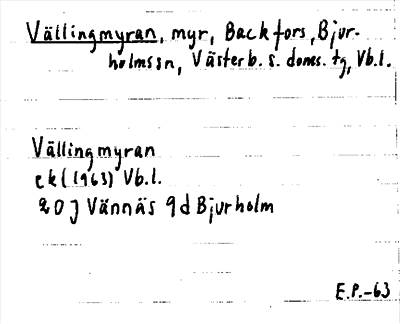 Vällingmyran, myr, Backfors, Bjur-
holmssn, Västerb. s. doms. tg, Vb.l.
Vällingmyran
ek (1963) Vb.l.
20J Vännäs 9d Bjurholm
E.P.-63